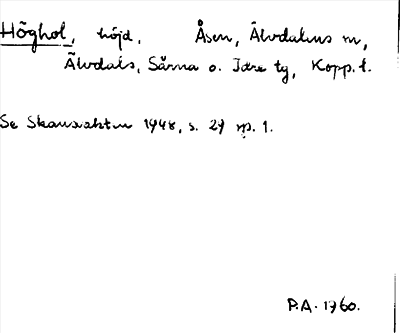 Höghol, höjd, Åsen, Älvdalens sn,
Älvdals, Särna o. Idre tg, Kopp. l.
Se Skansvakten 1948, s. 29 sp. 1.
P.A. 1960.